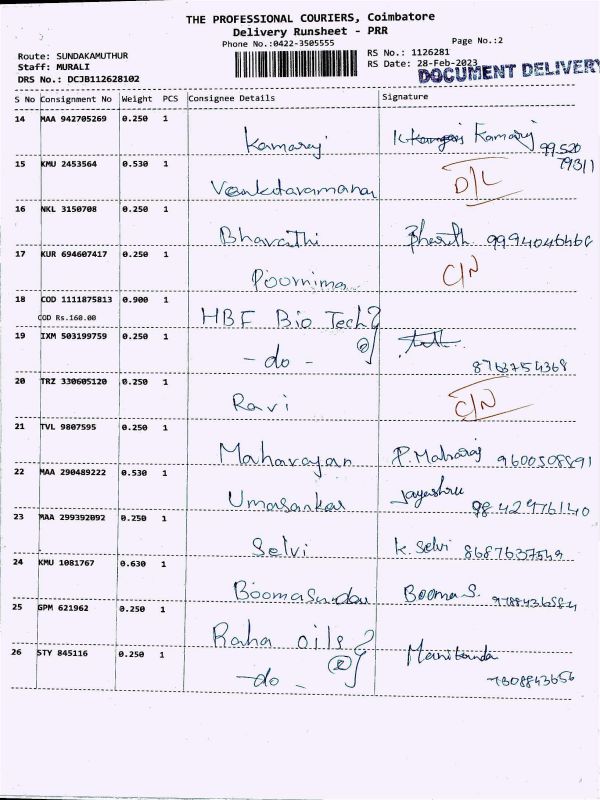 THE PROFESSIONAL COURIERS, Coimbatore
Delivery Runsheet - PRR
Phone No.:0422-3505555
Page No.:2
Route: SUNDAKAMUTHUR
Staff: MURALI
DRS No.: DCJB112628102
RS No.: 1126281
RS Date: 28-Feb-2023
DOCUMENT DELIVERY
S No Consignment No Weight PCS Consignee Details Signature
14 MAA 942705269 0.250 1
Kamaraj Kamaraj 99520
79311
15 KMU 2453564 0.530 1
Venkitaramanan D/L
16 NKL 3150708 0.250 1
Bharathi Bharath
17 KUR 694607417 0.250 1
Poornima C/N
18 COD 1111875813 0.900 1
COD Rs.160.00
HBF Bio Tech
19 IXM 503199759 0.250 1
-do- 2
8763754368
20 TRZ 330605120 0.250 1
Ravi C/N
21 TVL 9807595 0.250 1
Maharajan P. Maharaj 9600508891
22 MAA 290489222 0.530 1
Umasankar Jayashru 9842976140
23 MAA 299392092 0.250 1
Selvi K. Selvi 8687637549
24 KMU 1081767 0.630 1
Boomasundar Booma S.
25 GPM 621962 0.250 1
Raha oils
26 STY 845116 0.250 1
-do- 2
7308843656